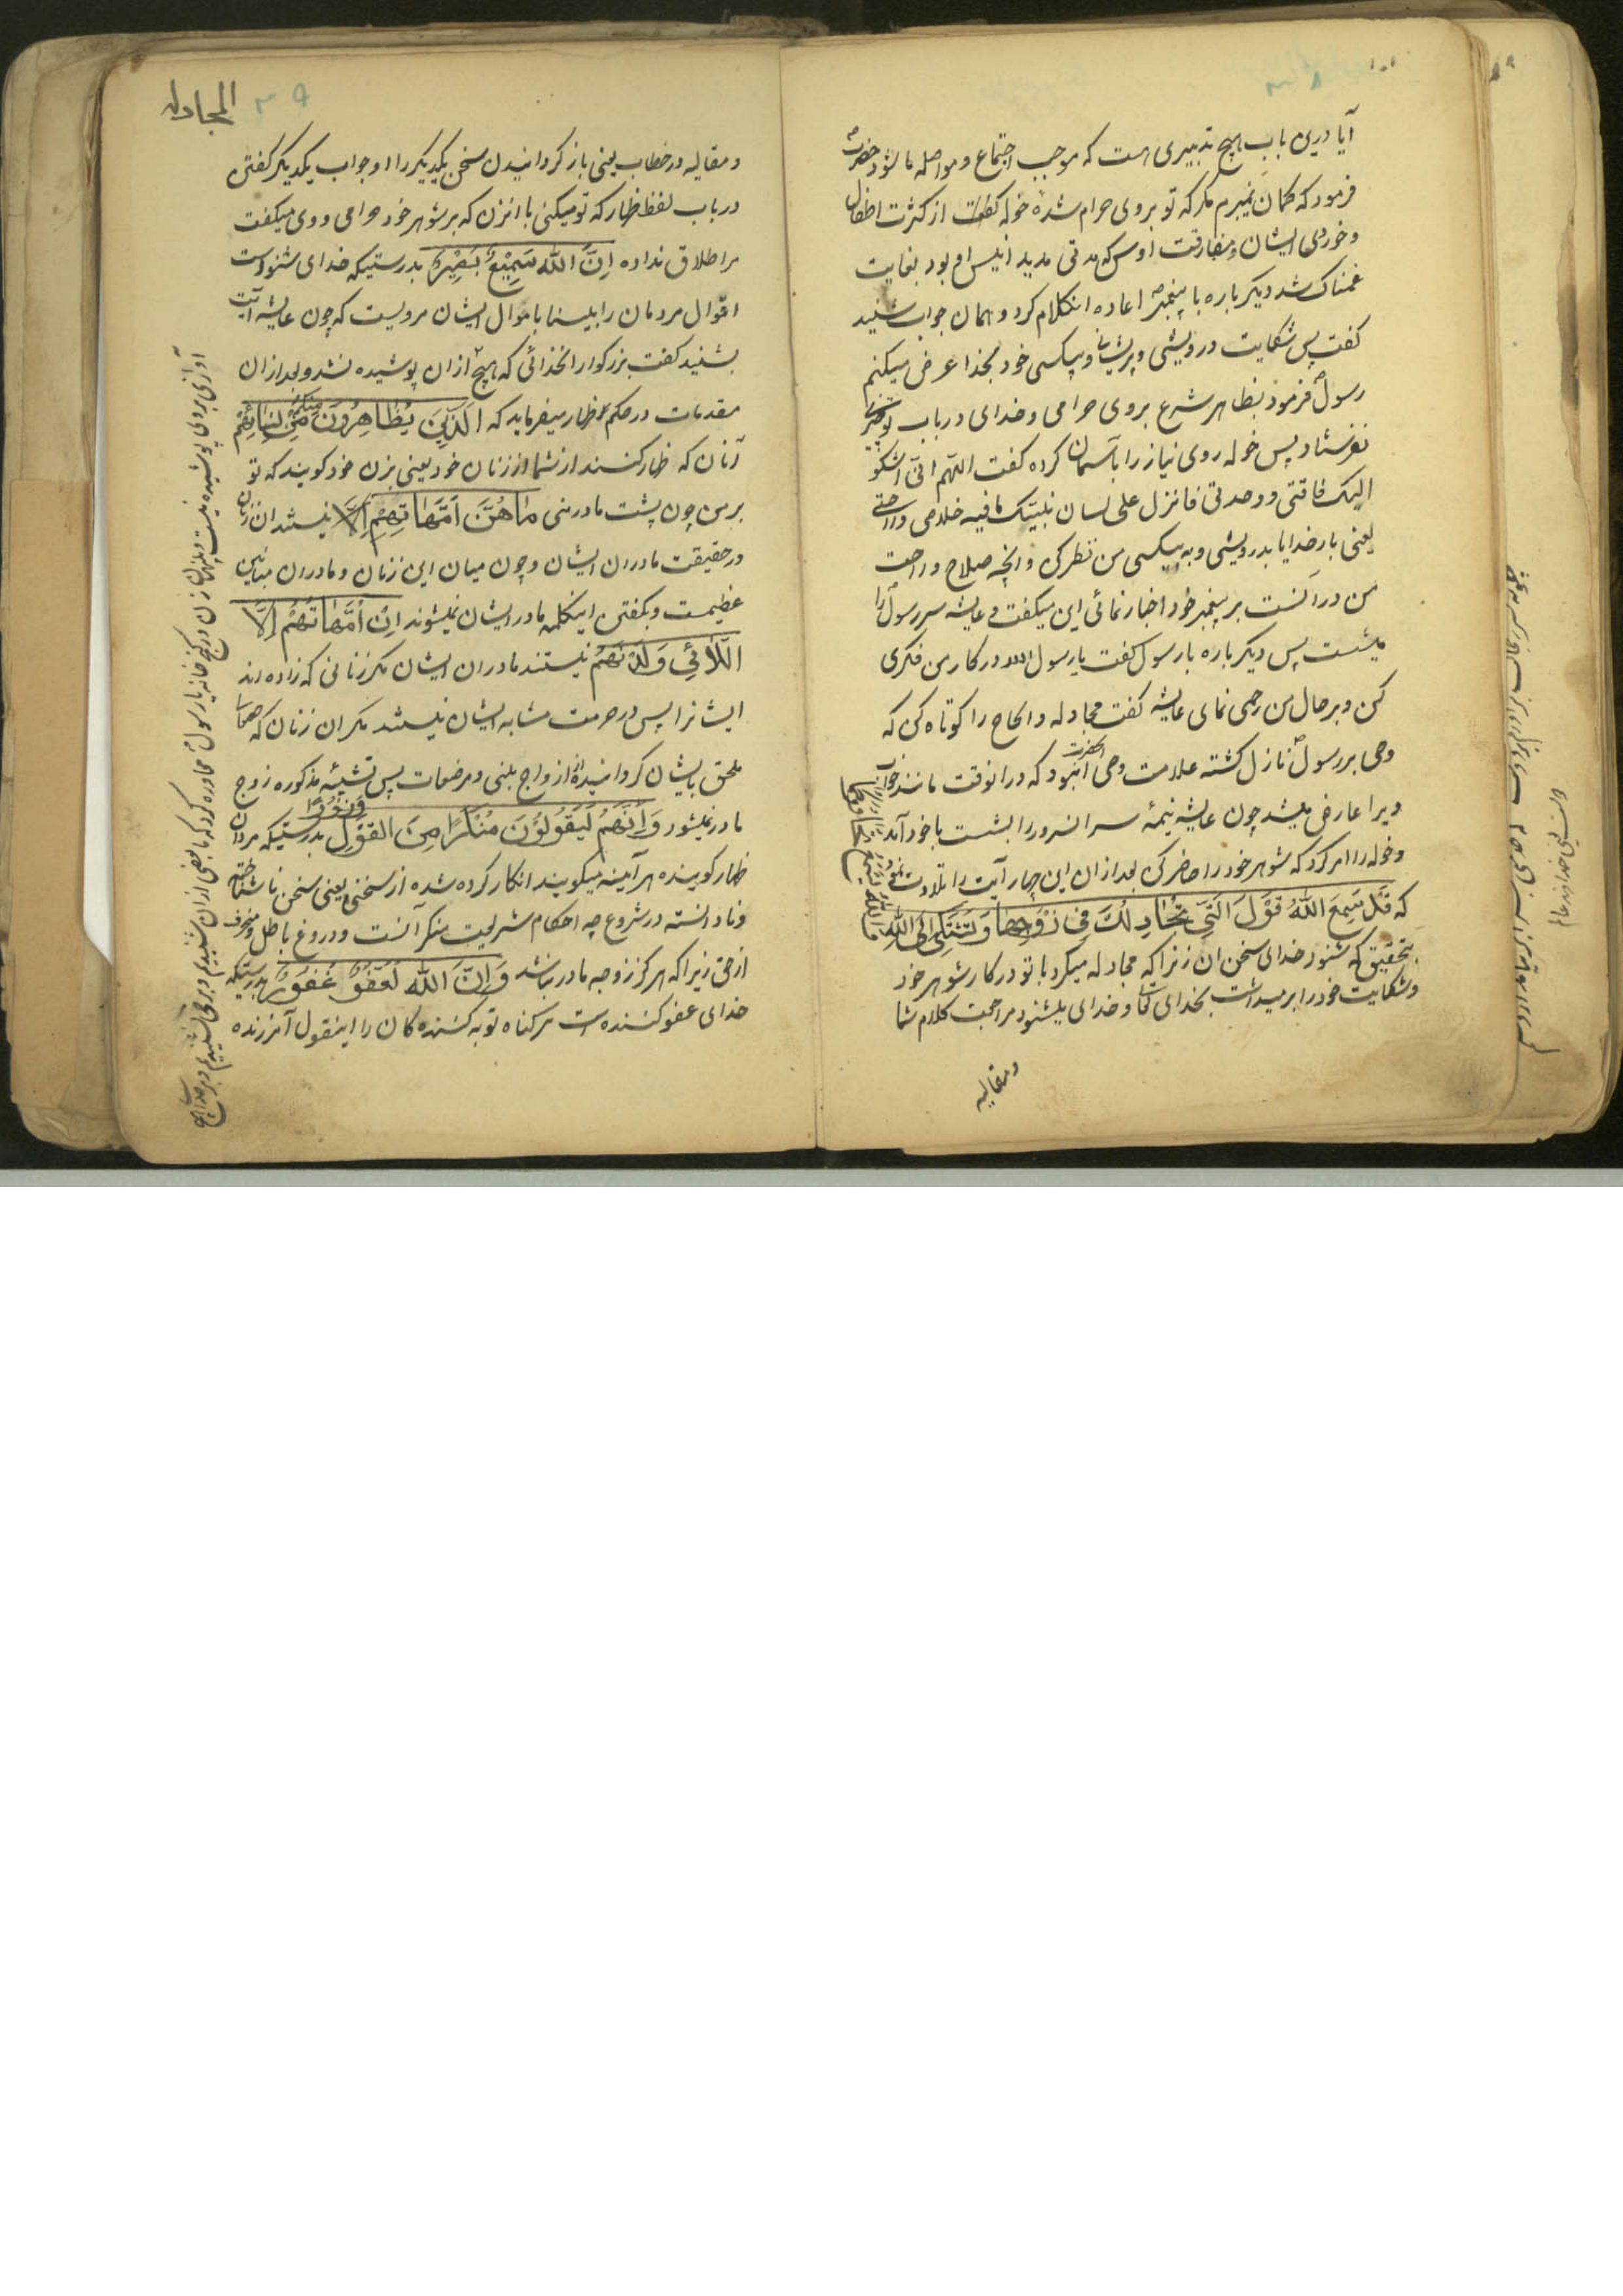 آیا درین باب هیچ تدبیری هست که موجب اجتماع و مواصله ما شود حضرت
فرمود که گمان نمیبرم مگر که تو بروی حرام شده خوله از کثرت اطفال
و خوردی ایشان و مفارقت اوس که مدتی مدید انیس او بود بغایت
غمناک شد دیگر باره با پیغمبر اعاده انکلام کرد و همان جواب شنید
گفت پس شکایت درویشی و پریشانی و بیکسی خود بخدا عرض میکنم
رسول فرمود بظاهر شرع بروی حرامی و خدای در باب تو چیزی
نفرستاد پس خوله روی نیاز را بآسمان کرده گفت اللهم انی اشکو
الیک فاقتی و وحدتی فانزل علی لسان نبیک ما فیه خلاصی و راحتی
یعنی بار خدایا بدرویشی و به بیکسی من نظر کن و انچه صلاح و راحت
من در انست بر پیغمبر خود اخبار نمائی این میگفت و عایشه سر رسول را
میشست پس دیگر باره با رسول گفت یا رسول الله در کار من فکری
کن و بر حال من رحمی نمای عایشه گفت مجادله و الحاح را کوتاه کن که
وحی بر رسول نازل گشته علامت وحی انحضرت انبود که در انوقت مانند خواب
ویرا عارض میشد چون عایشه نیمهٔ سر انسرور را بشست با خود آمد
و خوله را امر کرد که شوهر خود را حاضر کن بعد از ان این چهار آیت را تلاوت نمود
که قد سمع الله قول التی تجادلک فی زوجها و تشتکی الی الله
بتحقیق که شنود خدای سخن ان زنرا که مجادله میکرد با تو در کار شوهر خود
و شکایت خود را برمیداشت بخدای تعا و خدای میشنود مراجعت کلام شما
و مقالیه
المجادله
۳۹
و مقالیه در خطاب یعنی باز گردانیدن سخن یکدیگر را و جواب یکدیگر گفتن
در باب لفظ ظهار که تو میکنی با انزن که بر شوهر خود حرامی و وی میگفت
مرا طلاق نداده اِنَّ الله سَمِیعٌ بَصِیرٌ بدرستیکه خدای شنواست
اقوال مردمان را بیناست باحوال ایشان مرویست که چون عایشه این آیت
بشنید گفت بزرگوارا خدائی که هیچ از ان پوشیده نشد و بعد از ان
مقدمات در حکم ظهار میفرماید که اَلَّذِینَ یُظَاهِرُونَ مِنْکُمْ مِنْ نِسَائِهِمْ
آنان که ظهار کنند از شما از زنان خود یعنی بزن خود گویند که تو
بر من چون پشت مادر منی مَا هُنَّ اُمَّهَاتِهِمْ اِلَّا نیستند ان زنان
در حقیقت مادران ایشان و چون میان این زنان و مادران مباینتی
عظیمست و بگفتن اینکلمه مادر ایشان نمیشوند اِنْ اُمَّهَاتُهُمْ اِلَّا
اللَّائِی وَلَدْنَهُمْ نیستند مادران ایشان مگر زنانی که زاده اند
ایشانرا پس در حرمت مشابه ایشان نیستند مگر ان زنان که
ملحق بایشان گردانیده از ازواج نبی و مرضعات پس تشبیه مذکوره زوج
مادر نمیشود وَاِنَّهُمْ لَیَقُولُونَ مُنْکَرًا مِنَ القَوْلِ وَزُورًا بدرستیکه مردان
ظهار گوینده هر آینه میگویند انکار کرده شده از سخن یعنی سخن ناشناخته
و نادانسته در شروع چه احکام شریعت منکر آنست و دروغ باطل و منحرف
از حق زیرا که هرگز زوجه مادر نباشد وَاِنَّ الله لَعَفُوٌّ غَفُورٌ بدرستیکه
خدای عفو کننده است هر گناه توبه کننده گان را اینقول آمرزنده